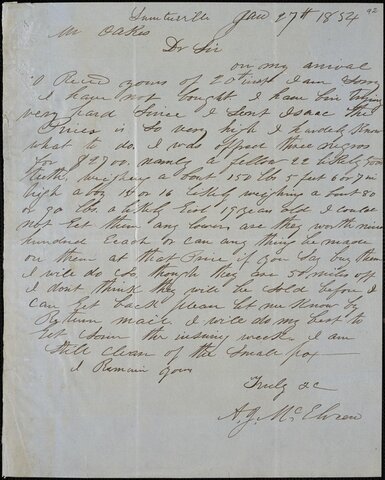 Sumterville Jan 27th 1854
92
Mr Oakes
Dr Sir
on my arrival
I Recd yours of 20th inst I am Sorry
I have not bought. I have bin trying
very hard Since I Sent Isaac the
Prices is So very high I hardely know
what to do. I was offord three negros
for $2700. namely a fellow 22 likely
weighing a bout 150 lbs 5 feet 6 or 7 in
high a boy 14 or 16 likely weighing a bout 80
or 90 lbs. a likely Girl 19 year old I could
not Get them any lower are they worth nine
hundred Each or can any thing be made
on them at that Price if you Say buy them
I will do So, though they are 50 miles off
I dont think they will be Sold before I
can Get back please let me know by
Return mail. I will do my best to
Get Some the insuing week. I am
Still Clear of the Small pox
I Remain yours
Truly &c
A. J. McElveen